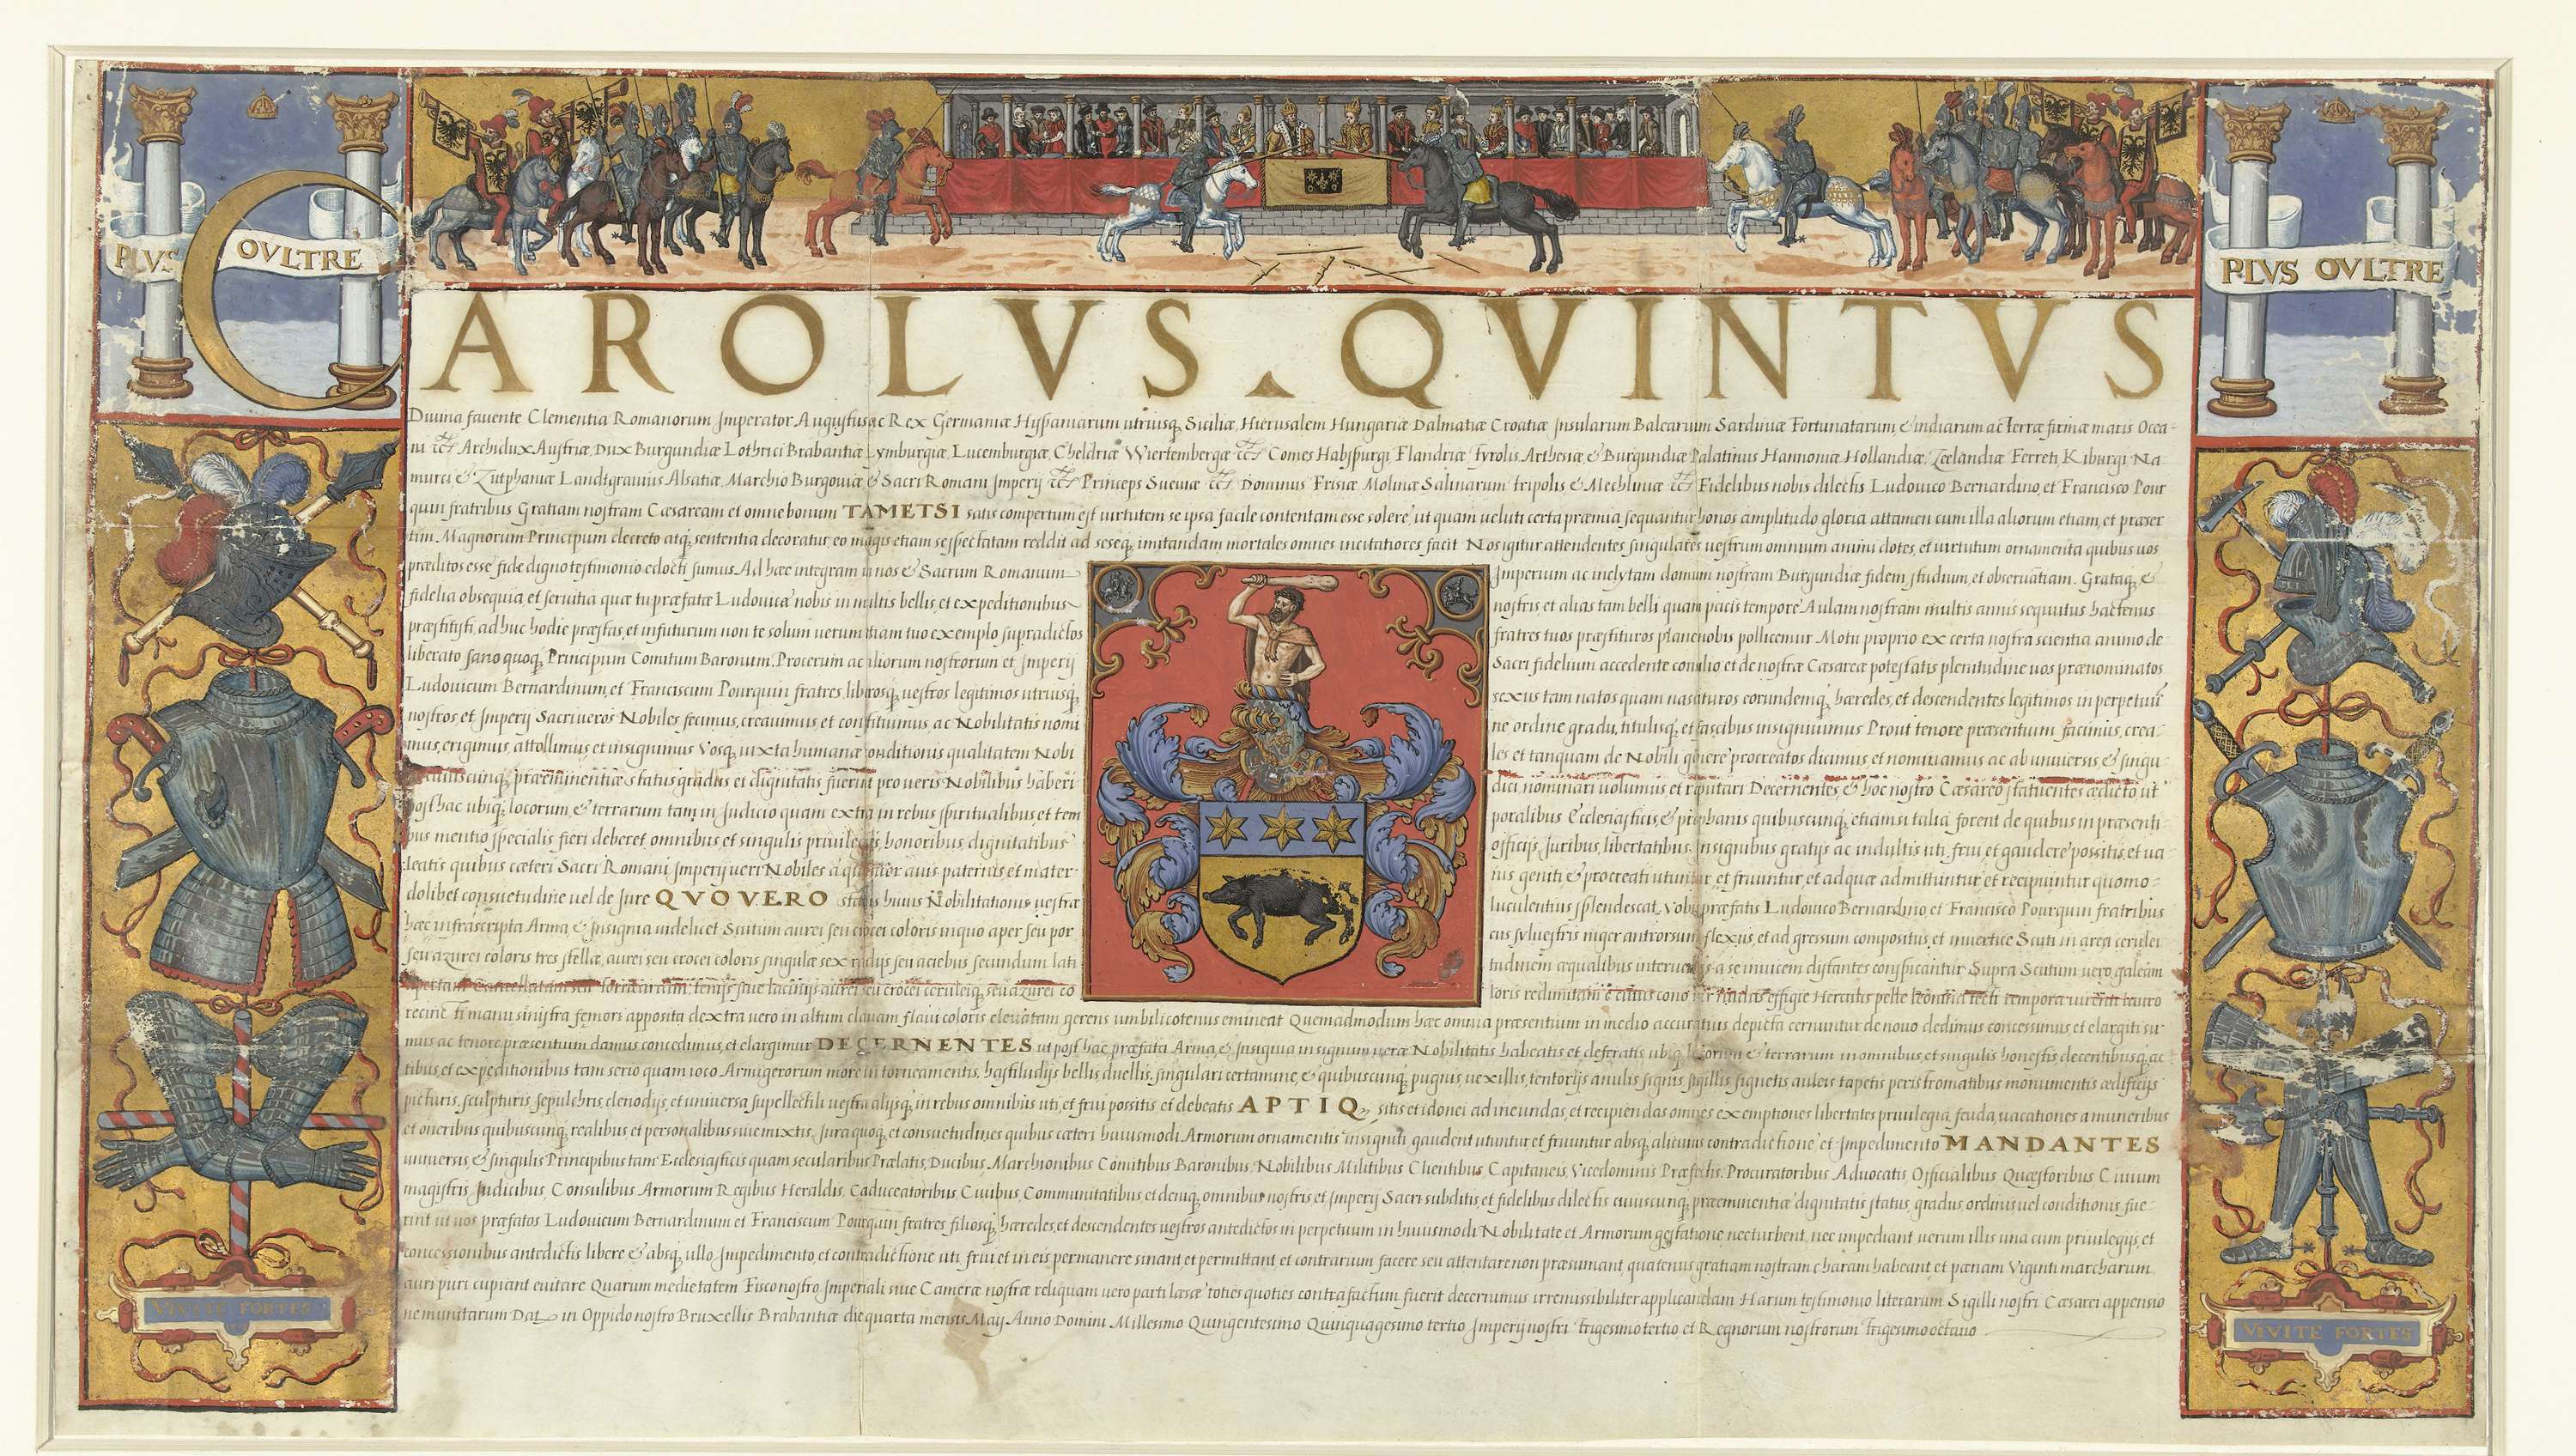 PLVS OVLTRE
PLVS OVLTRE
CAROLVS QVINTVS
Diuina fauente Clementia Romanorum Imperator Augustus ac Rex Germaniæ Hyspaniarum utriusq, Siciliæ, Hierusalem Hungariæ Dalmatiæ Croatiæ Insularum Balearium Sardiniæ Fortunatarum, & indiarum ac terræ firmæ maris Ocea-
ni Archidux Austriæ, Dux Burgundiæ Lothrici Brabantiæ Lymburgiæ, Lucemburgiæ, Gheldriæ Wiertembergæ Comes Habspurgi, Flandriæ Tyrolis, Arthesiæ, & Burgundiæ Palatinus Hannoniæ Hollandiæ, Zelandiæ Ferreti, Kiburgi Na
murci & Zutphaniæ Landtgrauius Alsatiæ, Marchio Burgouiæ & Sacri Romani Imperij Princeps Sueuiæ Dominus Frisiæ Molinæ Salinarum tripolis & Mechliniæ Fidelibus nobis dilectis Ludouico Bernardino, et Francisco Pour
quin fratribus Gratiam nostram Cæsaream et omne bonum TAMETSI satis compertum est uirtutem se ipsa facile contentam esse solere, ut quam ueluti certa præmia sequantur honos amplitudo gloria attamen cum illa aliorum etiam, et præser
tim Magnorum Principum decreto atq, sententia decoratur, eo magis etiam se spectatam reddit ad seseq, imitandam mortales omnes incitatiores facit Nos igitur attendentes singulares uestrum omnium animi dotes, et uirtutum ornamenta quibus uos
præditos esse fide digno testimonio edocti sumus Ad hæc integram in nos & Sacrum Romanum Imperium ac inclytam domum nostram Burgundiæ fidem, studium, et obseruatiam. Grataq, &
fidelia obsequia, et seruitia quæ tu præfatæ Ludouicæ nobis in multis bellis, et expeditionibus nostris, et alias tam belli quam pacis tempore Aulam nostram multis annis sequutus hactenus
præstitisti, ad huc hodie præstas, et in futurum non te solum uerum etiam tuo exemplo supradictos fratres tuos præstituros plane nobis pollicemur Motu proprio ex certa nostra scientia animo de
liberato sano quoq, Principum Comitum Baronum, Procerum ac aliorum nostrorum et Imperij Sacri fidelium accedente consilio et de nostræ Cæsareæ potestatis plenitudine uos prænominatos
Ludouicum Bernardinum, et Franciscum Pourquin fratres, liberosq, uestros legitimos utriusq, sexus tam natos quam nascituros eorundemq, hæredes, et descendentes legitimos in perpetuū
nostros, et Imperij Sacri ueros Nobiles fecimus, creauimus et constituimus, ac Nobilitatis nomi ne ordine gradu, titulisq, et fascibus insigniuimus Prout tenore præsentium facimus, crea-
mus, erigimus, attollimus et insignimus Vosq, iuxta humanæ conditionis qualitatem Nobi les et tanquam de Nobili genere procreatos dicimus et nominamus ac ab uniuersis, & singu
cuiuscunq, præeminentiæ status gradus et dignitatis fuerint pro ueris Nobilibus haberi dici, nominari uolumus et reputari Decernentes, & hoc nostro Cæsareo statuentes ædicto, ut
post hac ubiq, locorum, & terrarum tam in Judicio quam extra in rebus spiritualibus et tem poralibus Ecclesiasticis, & prophanis quibuscunq, eticimsi talia forent de quibus in præsenti-
bus mentio specialis fieri deberet omnibus, et singulis priuilegijs, honoribus, dignitatibus officijs, Juribus, libertatibus, Insignibus gratijs ac indultis uti, frui, et gaudere possitis, et ua
leatis quibus cæteri Sacri Romani Imperij ueri Nobiles a quatuor auis paternis, et mater- nis geniti, & procreati utuntur et fruuntur, et ad quæ admittuntur et recipiuntur quomo-
dolibet consuetudine uel de Jure QVO VERO status huius Nobilitationis uestræ luculentius splendescat, Vobis præfatis Ludouico Bernardino, et Francisco Pourquin fratribus
hæc infrascripta Arma, & Insignia uidelicet Scutum aurei seu crocei coloris in quo aper seu por cus syluestris niger antrorsum flexus, et ad gressum compositus, et in uertice Scuti in area cerulei
seu azurei coloris tres stellæ, aurei seu crocei coloris singulæ sex radijs seu aciebus secundum lati tudinem æqualibus interuallis a se inuicem distantes conspiciantur Supra Scutum uero, galeam
loris redimitam
recinc ti manu sinistra femori apposita dextra uero in altum clauam flaui coloris eleuatam gerens umbilico tenus emineat Quemadmodum hæc omnia præsentium in medio accuratius depicta cernuntur de nouo dedimus concessimus, et elargiti su
mus ac tenore præsentium damus concedimus, et elargimur DECERNENTES ut post hac præfata Arma, & Insignia in signum ueræ Nobilitatis habeatis, et deferatis ubiq, locorum & terrarum in omnibus, et singulis honestis, decentibusq, ac
tibus, et expeditionibus tam serio quam ioco Armigerorum more in torneamentis, hastiludijs bellis, duellis, singulari certamine, & quibuscunq, pugnis, uexillis, tentorijs anulis, signis, sigillis, signetis, auleis tapetis peristromatibus monumentis ædificijs
picturis, sculpturis, sepulchris, clenodijs, et uniuersa supellectili uestra alijsq, in rebus omnibus uti, et frui possitis et debeatis APTIQ, sitis et idonei ad ineundas, et recipiendas omnes exemptiones libertates priuilegia, feuda, uacationes a muneribus
et oneribus quibuscunq, realibus et personalibus siue mixtis, Jura quoq, et consuetudines quibus cæteri huiusmodi Armorum ornamentis insigniti gaudent utuntur et fruuntur absq, alicuius contradictione et Impedimento MANDANTES
uniuersis, & singulis Principibus tam Ecclesiasticis quam secularibus Prælatis, Ducibus Marchionibus Comitibus Baronibus, Nobilibus Militibus Clientibus, Capitaneis, Vicedominis Præfectis, Procuratoribus Aduocatis, Officialibus Quæstoribus Ciuium
magistris Judicibus, Consulibus Armorum Regibus Heraldis, Caduceatoribus, Ciuibus, Communitatibus et deniq, omnibus nostris, et Imperij Sacri subditis, et fidelibus dilectis cuiuscunq, præeminentiæ dignitatis status, gradus, ordinis uel conditionis fue-
rint ut uos præfatos Ludouicum Bernardinum et Franciscum Pourquin fratres, filiosq, hæredes, et descendentes uestros antedictos in perpetuum in huiusmodi Nobilitate et Armorum gestatione nec turbent, nec impediant uerum illis una cum priuilegijs, et
concessionibus antedictis libere & absq, ullo Impedimento, et contradictione uti, frui et in eis permanere sinant et permittant et contrarium facere seu attentare non præsumant, quatenus gratiam nostram charam habeant, et pænam Viginti marcharum
auri puri cupiant euitare Quarum medietatem Fisco nostro Imperiali siue Cameræ nostræ reliquam uero parti læsæ toties quoties contra factum fuerit decernimus irremissibiliter applicandam Harum testimonio literarum Sigilli nostri Cæsarei appensio
ne munitarum Dat in Oppido nostro Bruxellis Brabantiæ die quarta mensis Maij Anno Domini Millesimo Quingentesimo Quinquagesimo tertio Imperij nostri Trigesimo tertio, et Regnorum nostrorum Trigesimo octauo
VIVITE FORTES
VIVITE FORTES